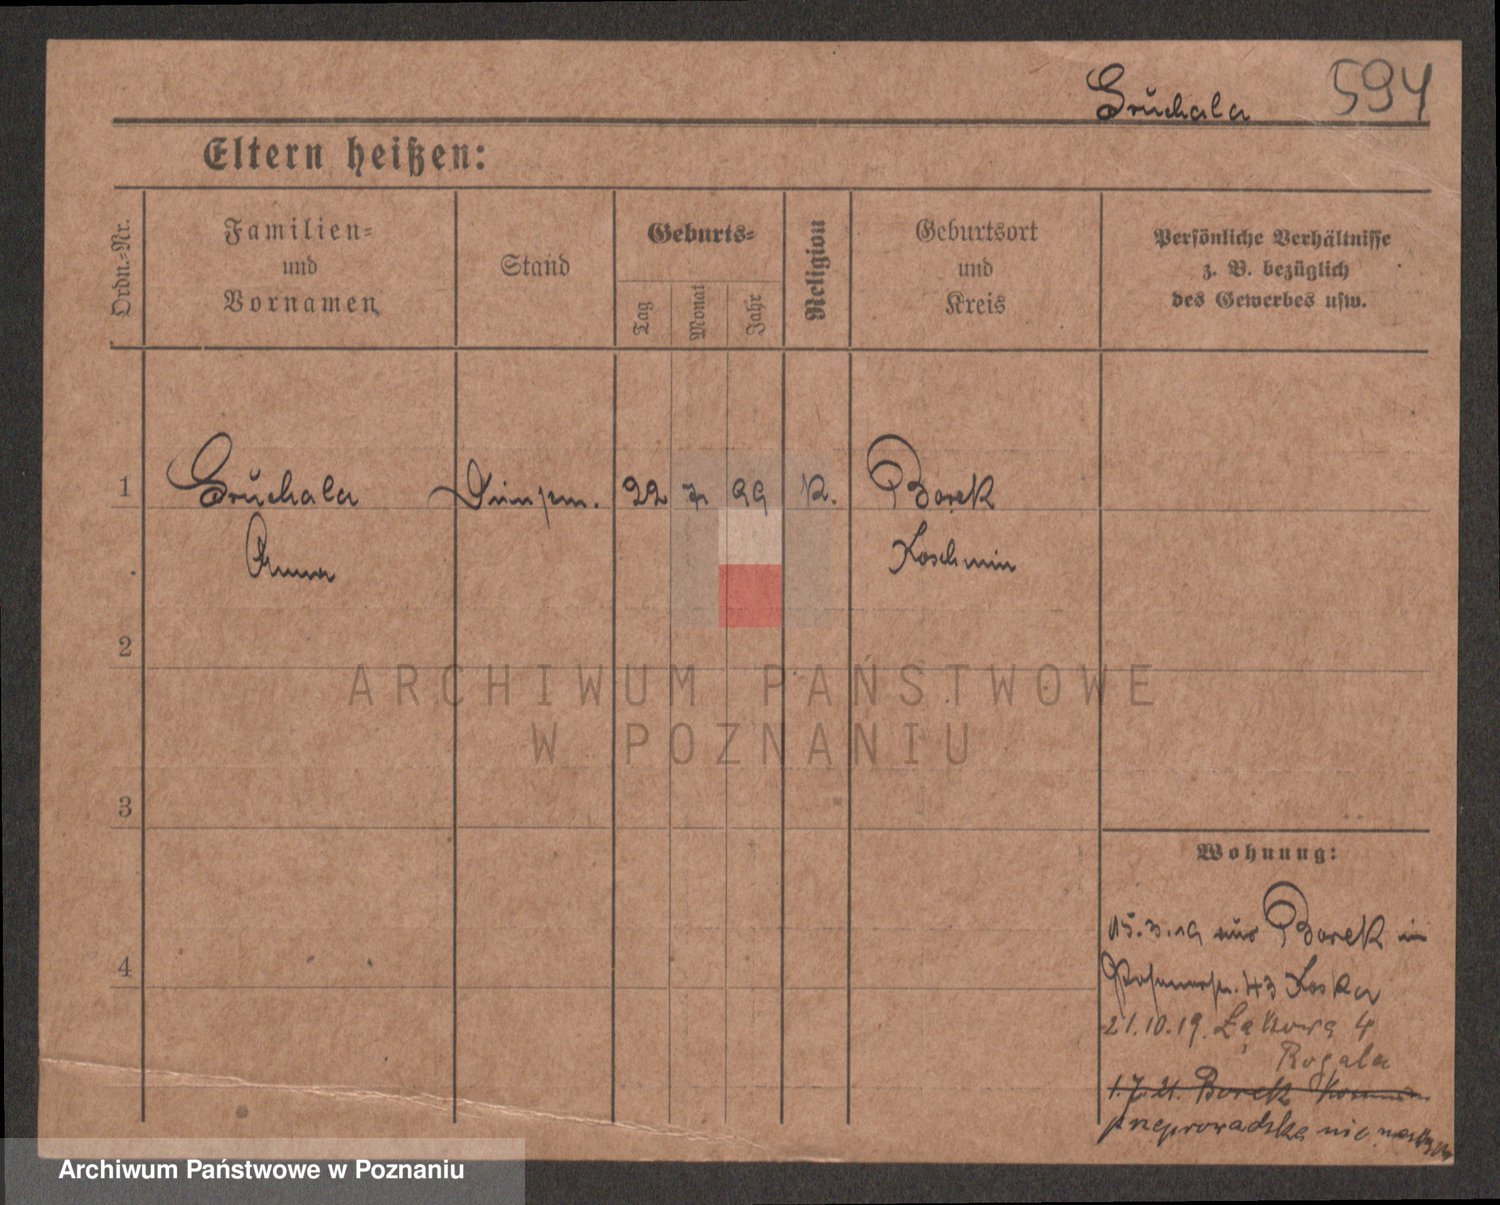 Gruchala 594
Eltern heißen:
Ordn.-Nr.
Familien-
und
Vornamen
Stand
Geburts-
Tag
Monat
Jahr
Religion
Geburtsort
und
Kreis
Persönliche Verhältnisse
z. B. bezüglich
des Gewerbes usw.
1 Gruchala 22 7 99 K. Borek
Anna Koschmin
2
3
4
ARCHIWUM PAŃSTWOWE
W POZNANIU
Wohnung:
15.3.19 aus Borek in
43 Koska
21.10.19. Łąkowa 4
Rogala
1.7.21. Borek
przeprowadzka nie
Archiwum Państwowe w Poznaniu